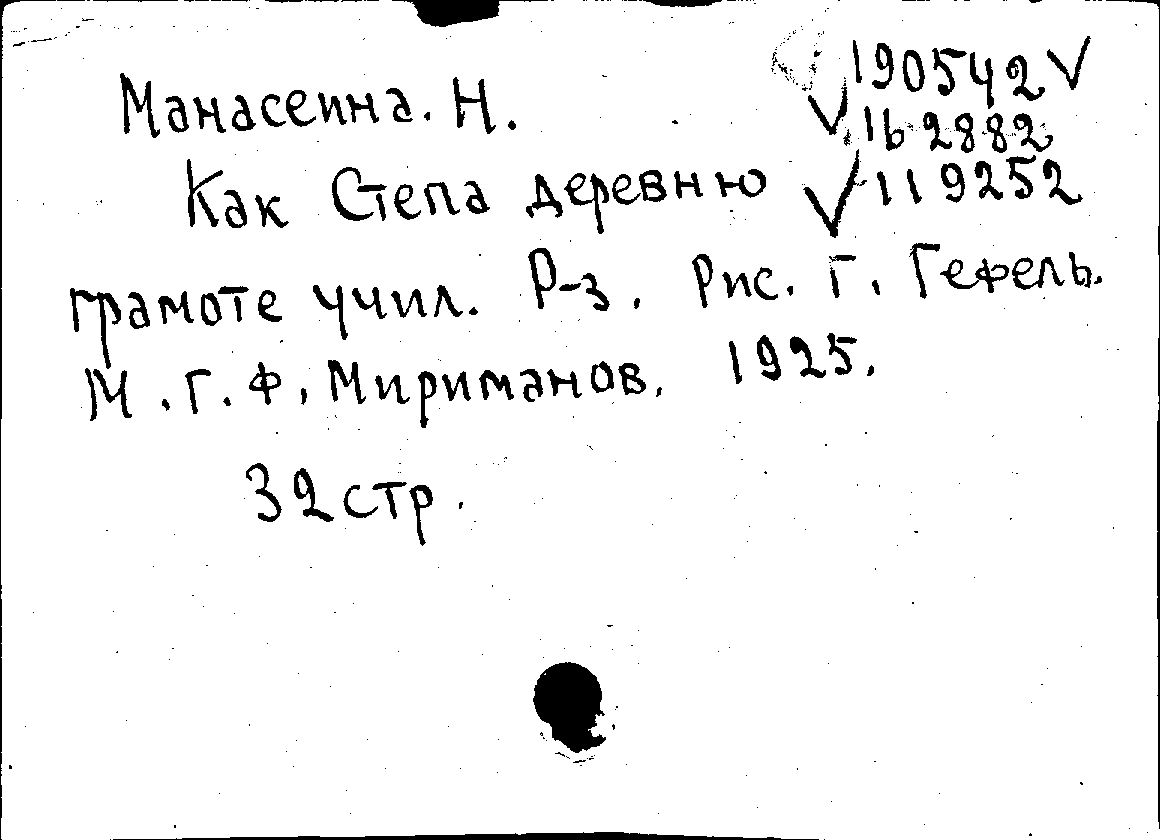 Манасеина. Н.
190542
162882
Как Степа деревню
119252
грамоте учил. Р-з. Рис. Г. Гефель.
М. Г. Ф. Мириманов. 1925.
32 стр.